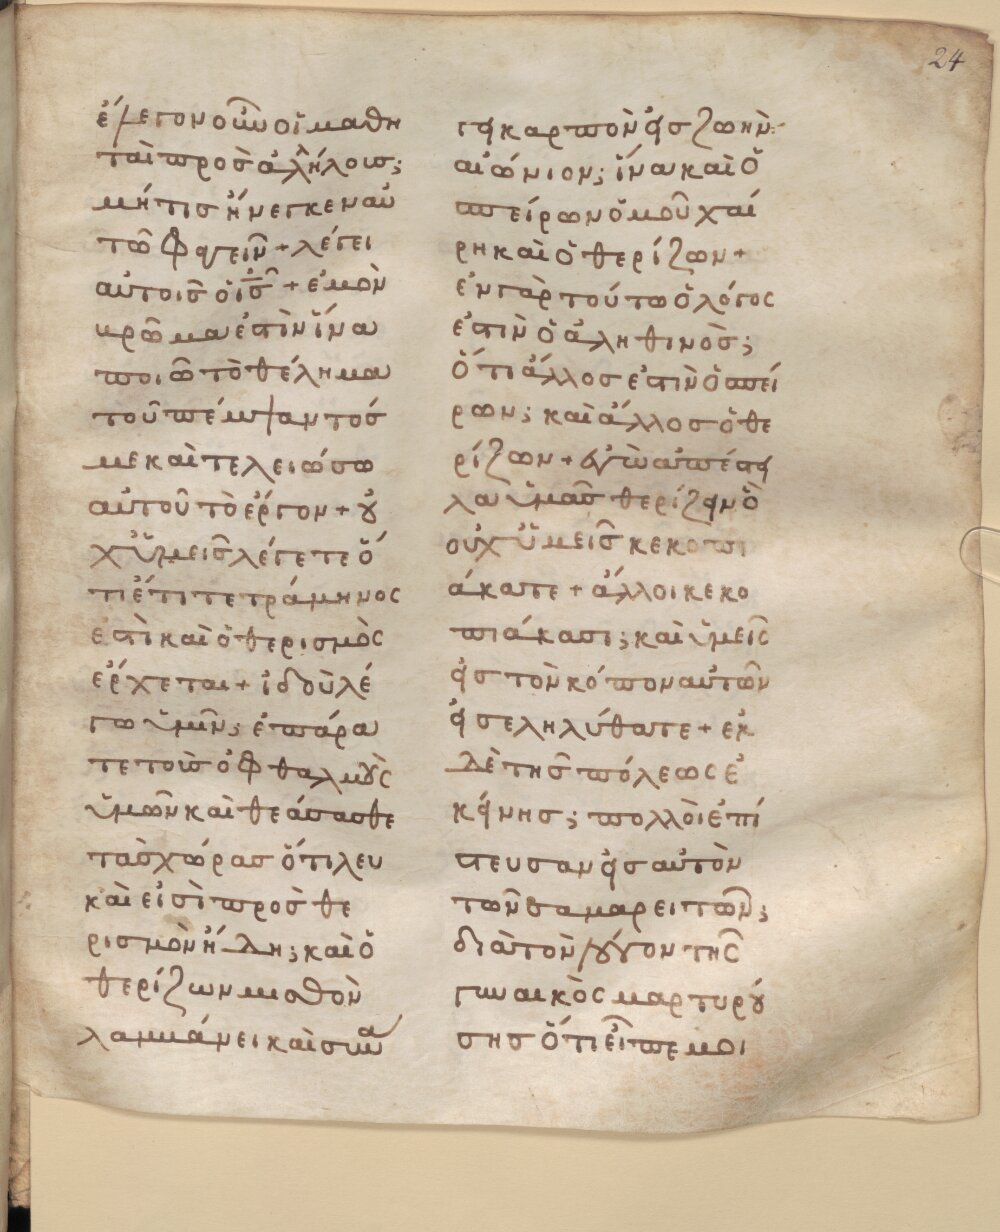 24
ἔλεγον οὖν οἱ μαθη
ταὶ πρὸς ἀλλήλους;
μή τις ἤνεγκεν αὐ
τῶ φαγεῖν + λέγει
αὐτοῖς ὁ ις + ἐμὸν
βρῶμα ἐστὶν ἵνα
ποιῶ τὸ θέλημα
τοῦ πέμψαντός
με καὶ τελειώσω
αὐτοῦ τὸ ἔργον + οὐ
χ ὑμεῖς λέγετε ὅ
τι ἔτι τετράμηνος
ἐστὶ καὶ ὁ θερισμὸς
ἔρχεται + ἰδοὺ λέ
γω ὑμῖν; ἐπάρα
τε τοὺς ὀφθαλμοὺς
ὑμῶν καὶ θεάσασθε
τὰς χώρας ὅτι λευ
καὶ εἰσὶ πρὸς θε
ρισμὸν ἤδη; καὶ ὁ
θερίζων μισθὸν
λαμβάνει καὶ συνα
γει καρπὸν εἰς ζωὴν
αἰώνιον; ἵνα καὶ ὁ
σπείρων ὁμοῦ χαί
ρη καὶ ὁ θερίζων +
ἐν γὰρ τούτω ὁ λόγος
ἐστὶν ὁ ἀληθινὸς;
ὅτι ἄλλος ἐστὶν ὁ σπεί
ρων; καὶ ἄλλος ὁ θε
ρίζων + ἐγὼ ἀπέστει
λα ὑμᾶς θερίζειν ὃ
οὐχ ὑμεῖς κεκοπι
άκατε + ἄλλοι κεκο
πιάκασι; καὶ ὑμεῖς
εἰς τὸν κόπον αὐτῶν
εἰσεληλύθατε + ἐκ
δὲ τῆς πόλεως ἐ
κείνης; πολλοὶ ἐπί
στευσαν εἰς αὐτὸν
τῶν σαμαρειτῶν;
διὰ τὸν λόγον τῆς
γυναικὸς μαρτυρού
σης ὅτι εἶπε μοι